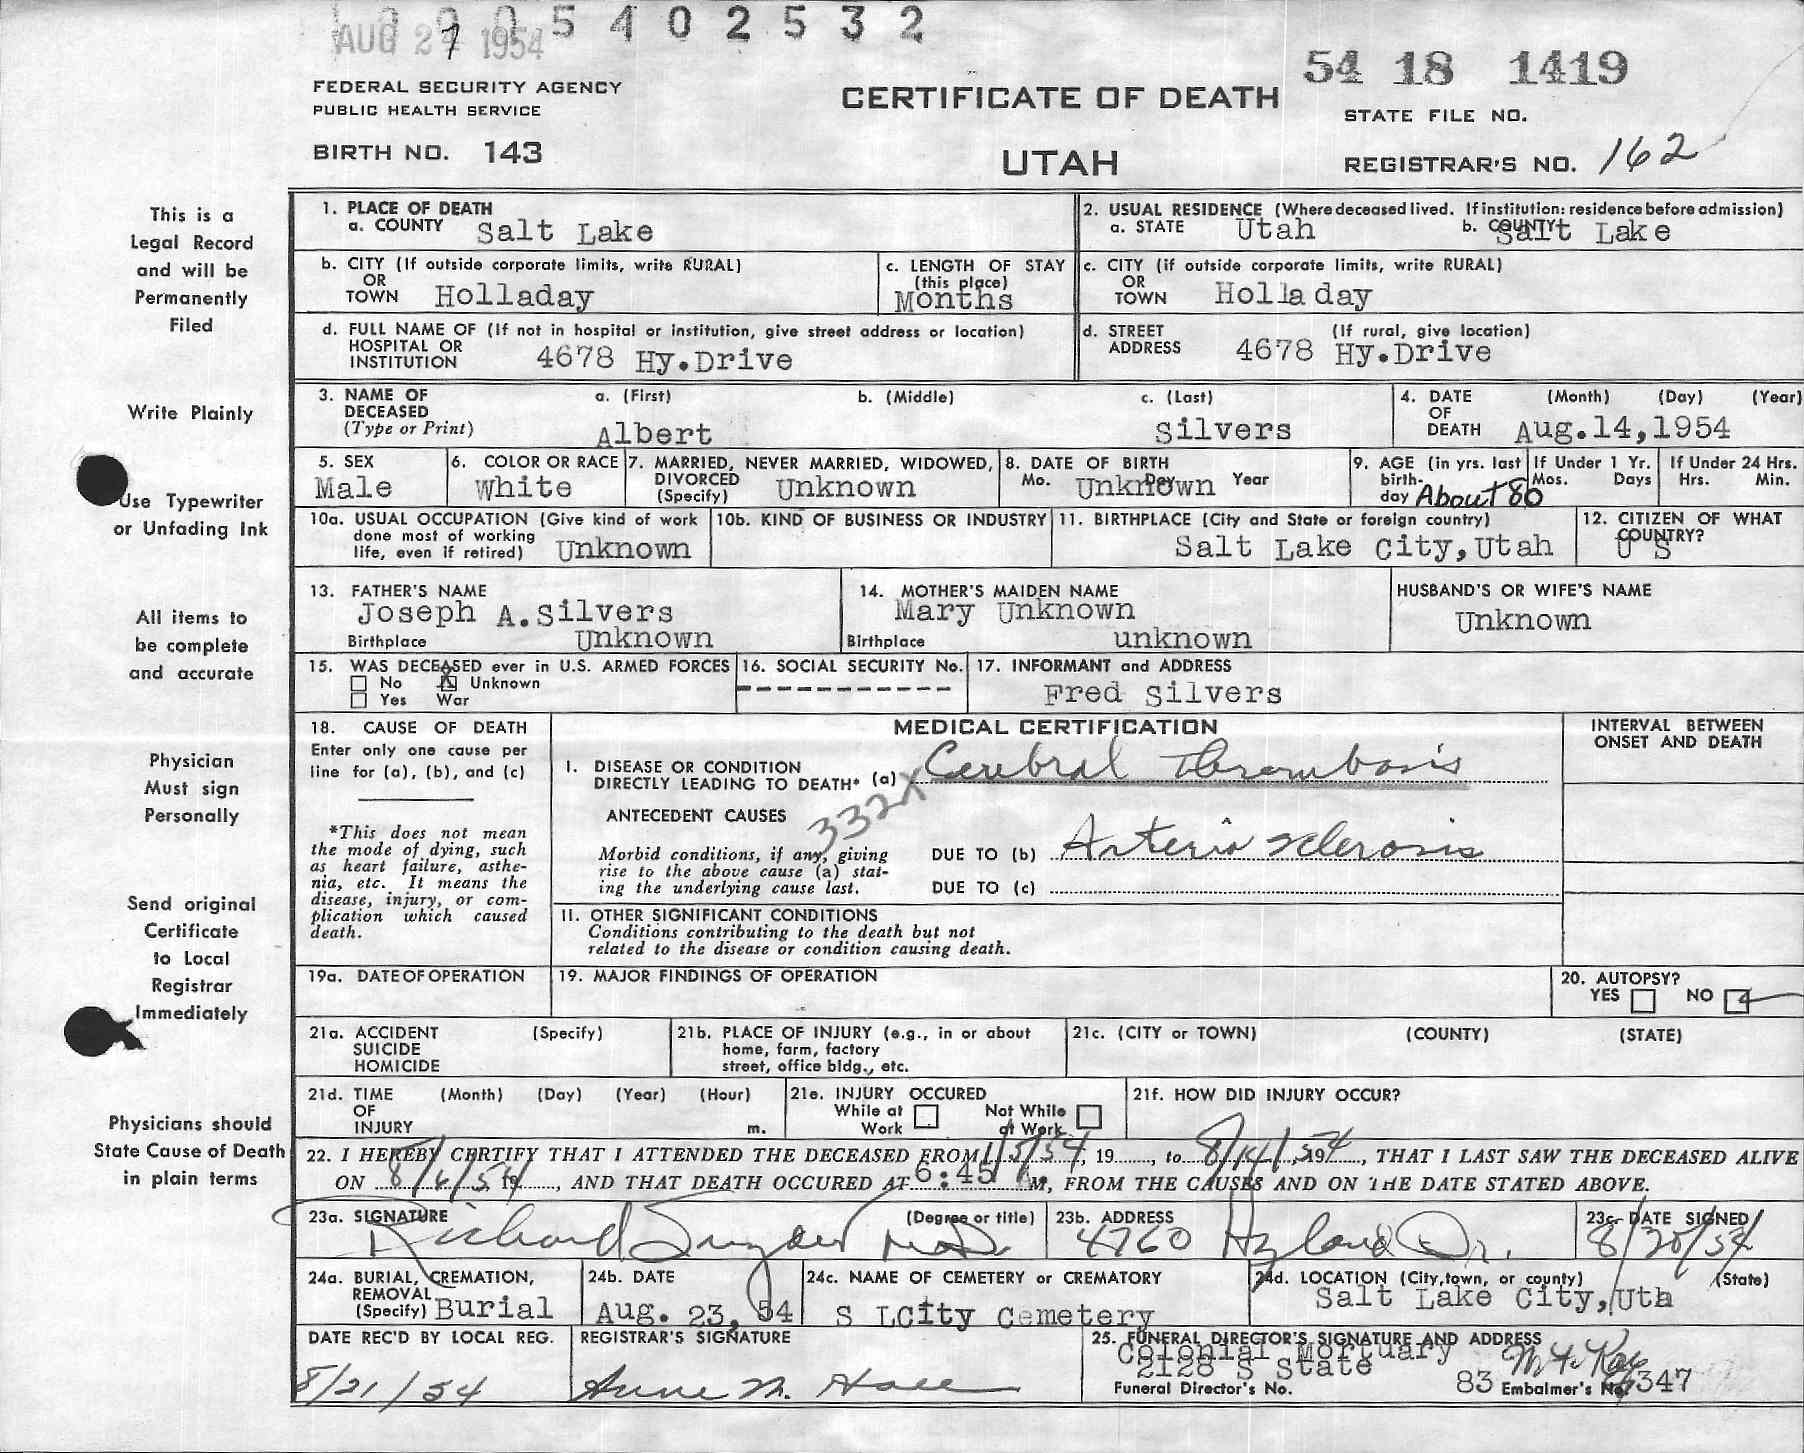 1005402532
AUG 27 1954
54 18 1419
FEDERAL SECURITY AGENCY
PUBLIC HEALTH SERVICE
CERTIFICATE OF DEATH
STATE FILE NO.
BIRTH NO. 143
UTAH
REGISTRAR'S NO. 162
This is a
Legal Record
and will be
Permanently
Filed
Write Plainly
Use Typewriter
or Unfading Ink
All items to
be complete
and accurate
Physician
Must sign
Personally
Send original
Certificate
to Local
Registrar
Immediately
Physicians should
State Cause of Death
in plain terms
1. PLACE OF DEATH
a. COUNTY Salt Lake
2. USUAL RESIDENCE (Where deceased lived. If institution: residence before admission)
a. STATE Utah b. COUNTY Salt Lake
b. CITY (If outside corporate limits, write RURAL)
OR
TOWN Holladay
c. LENGTH OF STAY
(this place)
Months
c. CITY (if outside corporate limits, write RURAL)
OR
TOWN Holladay
d. FULL NAME OF (If not in hospital or institution, give street address or location)
HOSPITAL OR
INSTITUTION 4678 Hy.Drive
d. STREET (If rural, give location)
ADDRESS 4678 Hy.Drive
3. NAME OF
DECEASED
(Type or Print)
a. (First) b. (Middle) c. (Last)
Albert Silvers
4. DATE (Month) (Day) (Year)
OF
DEATH Aug.14,1954
5. SEX
Male
6. COLOR OR RACE
White
7. MARRIED, NEVER MARRIED, WIDOWED,
DIVORCED
(Specify) Unknown
8. DATE OF BIRTH
Mo. Day Year
Unknown
9. AGE (in yrs. last
birth-
day About 80
If Under 1 Yr.
Mos. Days
If Under 24 Hrs.
Hrs. Min.
10a. USUAL OCCUPATION (Give kind of work
done most of working
life, even if retired) Unknown
10b. KIND OF BUSINESS OR INDUSTRY
11. BIRTHPLACE (City and State or foreign country)
Salt Lake City,Utah
12. CITIZEN OF WHAT
COUNTRY?
U S
13. FATHER'S NAME
Joseph A.Silvers
Birthplace Unknown
14. MOTHER'S MAIDEN NAME
Mary Unknown
Birthplace unknown
HUSBAND'S OR WIFE'S NAME
Unknown
15. WAS DECEASED ever in U.S. ARMED FORCES
No X Unknown
Yes War
16. SOCIAL SECURITY No.
------------
17. INFORMANT and ADDRESS
Fred Silvers
18. CAUSE OF DEATH
Enter only one cause per
line for (a), (b), and (c)
*This does not mean
the mode of dying, such
as heart failure, asthe-
nia, etc. It means the
disease, injury, or com-
plication which caused
death.
MEDICAL CERTIFICATION
INTERVAL BETWEEN
ONSET AND DEATH
I. DISEASE OR CONDITION
DIRECTLY LEADING TO DEATH* (a) Cerebral thrombosis
332X
ANTECEDENT CAUSES
Morbid conditions, if any, giving
rise to the above cause (a) stat-
ing the underlying cause last.
DUE TO (b) Arterio sclerosis
DUE TO (c)
II. OTHER SIGNIFICANT CONDITIONS
Conditions contributing to the death but not
related to the disease or condition causing death.
19a. DATE OF OPERATION
19. MAJOR FINDINGS OF OPERATION
20. AUTOPSY?
YES NO
21a. ACCIDENT (Specify)
SUICIDE
HOMICIDE
21b. PLACE OF INJURY (e.g., in or about
home, farm, factory
street, office bldg., etc.
21c. (CITY or TOWN) (COUNTY) (STATE)
21d. TIME (Month) (Day) (Year) (Hour)
OF
INJURY m.
21e. INJURY OCCURED
While at Work
Not While at Work
21f. HOW DID INJURY OCCUR?
22. I HEREBY CERTIFY THAT I ATTENDED THE DECEASED FROM 1/5/54, 19, to 8/14/54, 19, THAT I LAST SAW THE DECEASED ALIVE
ON 8/6/54, 19, AND THAT DEATH OCCURED AT 6:45 A M, FROM THE CAUSES AND ON THE DATE STATED ABOVE.
23a. SIGNATURE (Degree or title)
Richard Snyder M.D.
23b. ADDRESS
4760 Hyland Dr.
23c. DATE SIGNED
8/20/54
24a. BURIAL, CREMATION,
REMOVAL
(Specify) Burial
24b. DATE
Aug. 23, 54
24c. NAME OF CEMETERY or CREMATORY
S LCity Cemetery
24d. LOCATION (City,town, or county) (State)
Salt Lake City,Uta
DATE REC'D BY LOCAL REG.
8/21/54
REGISTRAR'S SIGNATURE
Anne M.
25. FUNERAL DIRECTOR'S SIGNATURE AND ADDRESS
Colonial Mortuary
2128 S State
Funeral Director's No. 83 Embalmer's No. 347